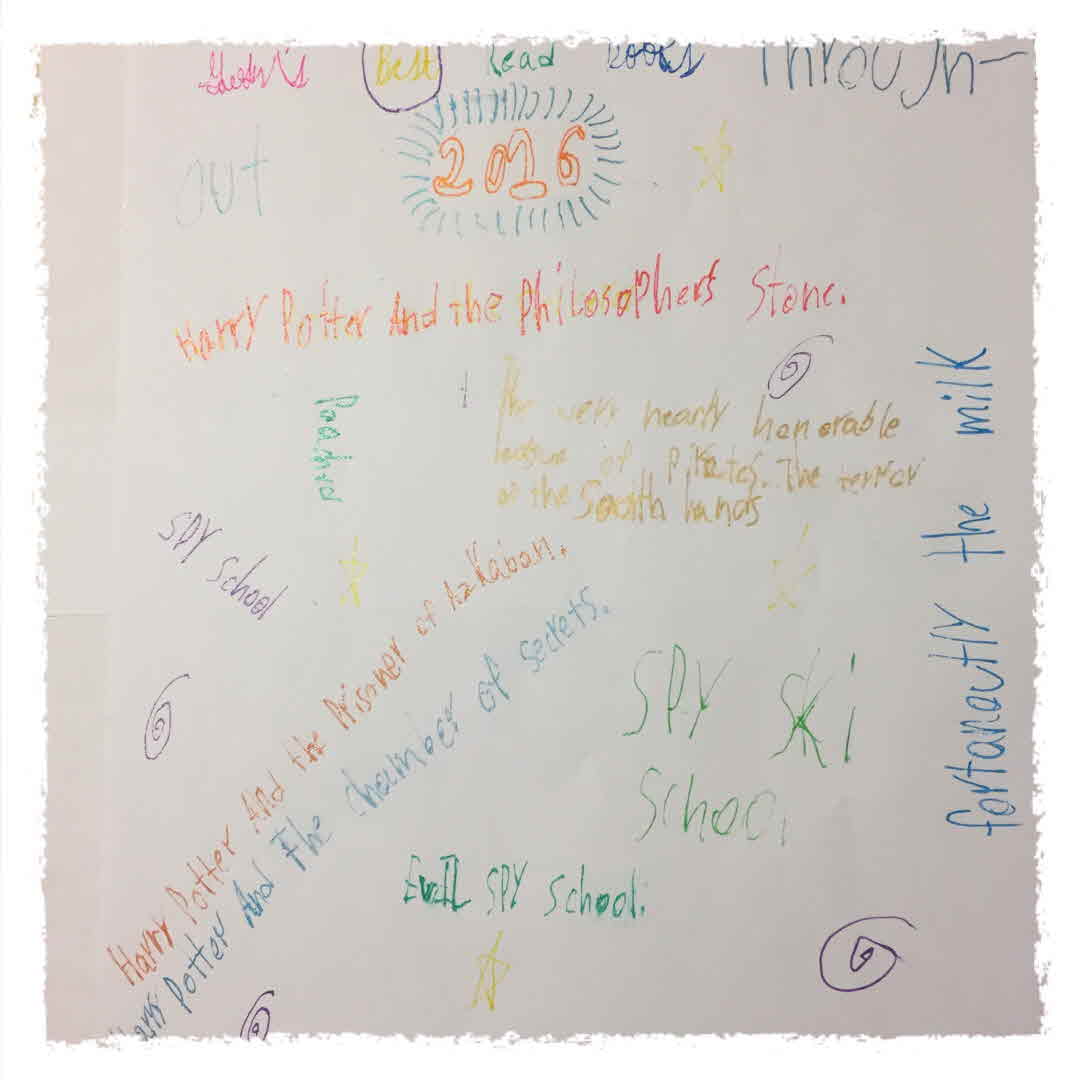 Best Read Books Through-
out
2016
Harry Potter And the Philosophers Stone.
Poached
The very nearly honorable
league of Pirates. The terror
of the South lands
fortanautly the milk
SPY School
Harry Potter And the Prisoner of Azkaban.
Harry Potter And The chamber of secrets.
SPY SKi
School
EvIL SPY School.